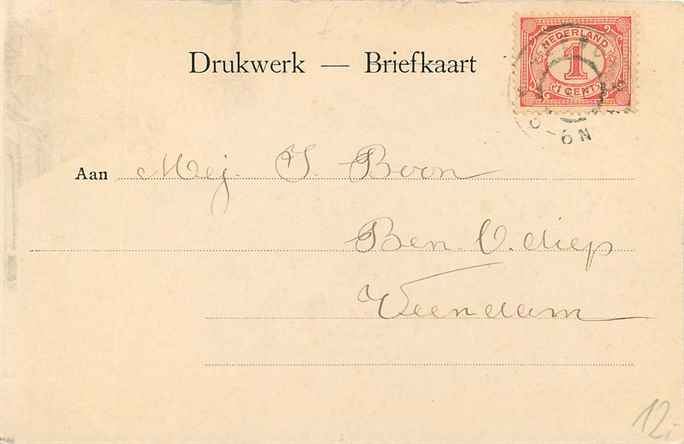 Drukwerk — Briefkaart
NEDERLAND
1
1 CENT
Aan Mej. J. Boon
Ben. O. diep
Veendam
12,-